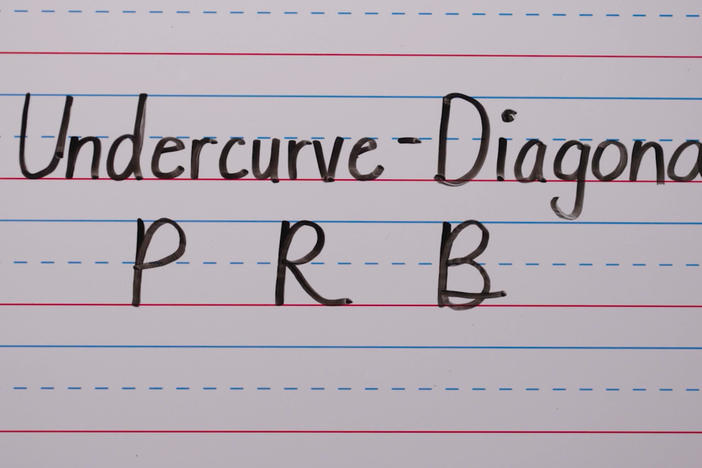 Undercurve-Diagona
P R B